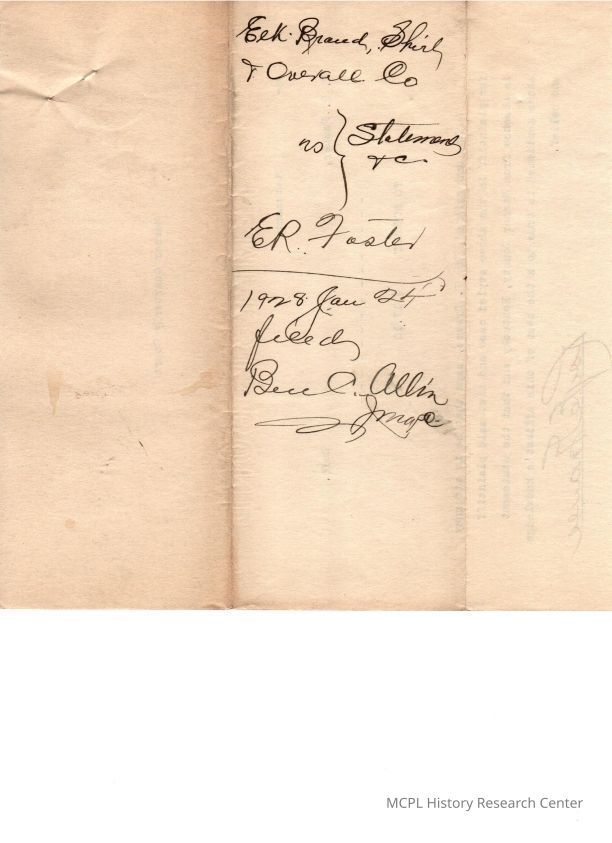 Elk Brand, Shirt
& Overall Co
vs } Statement
&c
E.R. Foster
1928 Jan 24
filed
Ben C. Allin
MCPL History Research Center